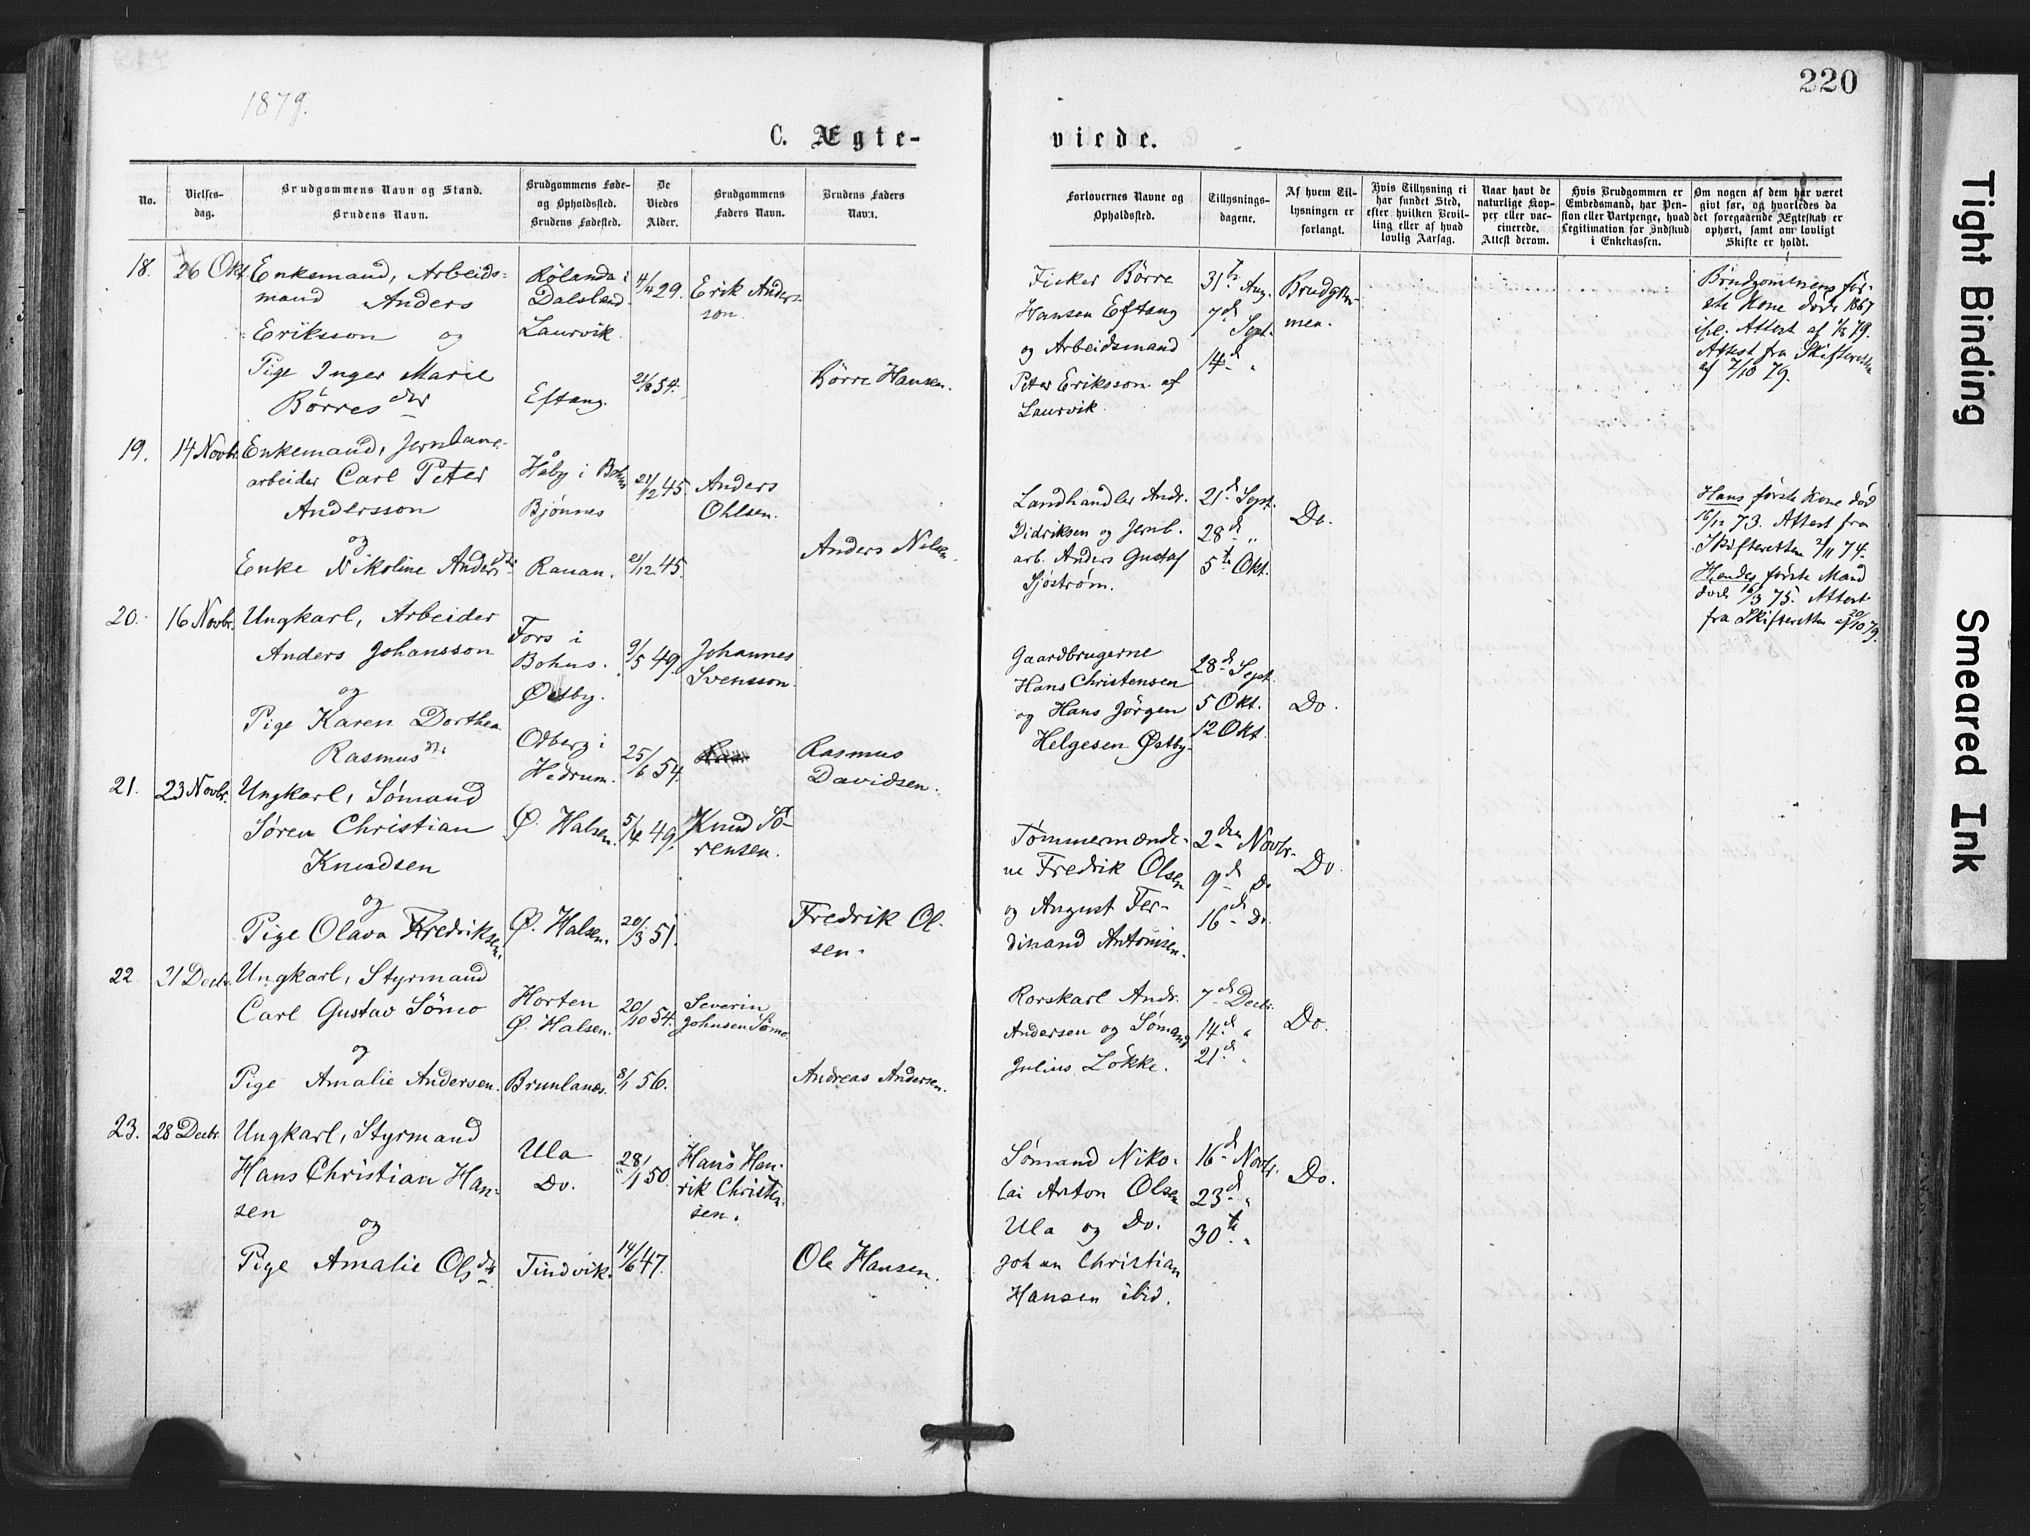 1879.
220
C. Ægte-
viede.
No.
Vielses-
dag.
Brudgommens Navn og Stand.
Brudens Navn.
Brudgommens Føde-
og Opholdssted.
Brudens Fødested.
De
Viedes
Alder.
Brudgommens
Faders Navn.
Brudens Faders
Navn.
Forlovernes Navne og
Opholdssted.
Tillysnings-
dagene.
Af hvem Til-
lysningen er
forlangt.
Hvis Tillysning ei
har fundet Sted,
efter hvilken Bevil-
ling eller af hvad
lovlig Aarsag.
Naar havt de
naturlige Kop-
per eller vac-
cinerede.
Attest derom.
Hvis Brudgommen er
Embedsmand, har Pen-
sion eller Vartpenge, hvad
Legitimation for Indskud
i Enkekassen.
Om nogen af dem har været
givt før, og hvorledes da
det foregaaende Ægteskab er
ophørt, samt om lovligt
Skifte er holdt.
18.
26 Okt.
Enkemand, Arbeids-
mand Anders
Eriksson og
Pige Inger Marie
Børresdtr
Rølanda i
Dalsland
Laurvik.
Eftang.
4/4 29.
21/8 54.
Erik Anders-
son.
Børre Hansen.
Fisker Børre
Hansen Eftang
og Arbeidsmand
Peter Eriksson af
Laurvik.
31te Aug.
7d Sept.
14d "
Brudgom-
men.
Brudgommens før-
ste Kone døde 1867
Attest af
Attest fra Skifteretten
af 7/10 79.
19.
14 Novbr.
Enkemand, Jernbane-
arbeider Carl Peter
Andersson
og
Enke Nikoline Andersdtr.
Håby i Bohus
Bjønnes
Rauan.
21/12 45.
21/12 45.
Anders
Ohlsen.
Anders Nilsen.
Landhandler Andr.
Didriksen og Jernb.
arb. Anders Gustaf
Sjøstrøm.
21d Sept.
28d "
5te Okt.
Do.
Hans første Kone død
16/12 73. Attest fra
Skifteretten 2/11 74.
Hendes første Mand
døde 16/3 75. Attest
fra Skifteretten af 20/10 79.
20.
16 Novbr.
Ungkarl, Arbeider
Anders Johansson
og
Pige Karen Dorthea
Rasmusdtr
Fors i
Bohus.
Østby.
Odberg i
Hedrum.
9/5 49.
25/6 54.
Johannes
Svensson.
Rasmus
Davidsen.
Gaardbrugerne
Hans Christensen
og Hans Jørgen
Helgesen Østby.
28d Sept.
5 Okt.
12 Okt.
Do.
21.
23 Novbr.
Ungkarl, Sømand
Søren Christian
Knudsen
og
Pige Olava Fredriksen.
Ø. Halsen.
Ø. Halsen.
5/4 49.
20/3 51.
Knud Sø-
rensen.
Fredrik Ol-
sen.
Tømmermænde-
ne Fredrik Olsen
og August Fer-
dinand Antonisen.
2den Novbr.
9d Do
16d Do.
Do.
22
21 Decbr.
Ungkarl, Styrmand
Carl Gustav Sømo
og
Pige Amalie Andersen.
Horten
Ø. Halsen.
Brunlanæs.
20/10 54.
8/1 56.
Severin
Johnsen Sømo.
Andreas Andersen.
Rorskarl Andr.
Andersen og Sømand
Julius Løkke.
7d Decbr.
14d "
21d "
Do.
23.
28 Decbr.
Ungkarl, Styrmand
Hans Christian Han-
sen
og
Pige Amalie Olsdtr
Ula
Do.
Tindvik.
28/1 50.
14/6 47.
Hans Hen-
rik Christen-
sen.
Ole Hansen.
Sømand Niko-
lai Anton Olsen
Ula og Do.
Johan Christian
Hansen ibid.
16d Novbr.
23d "
30te "
Do.
Tight Binding
Smeared Ink